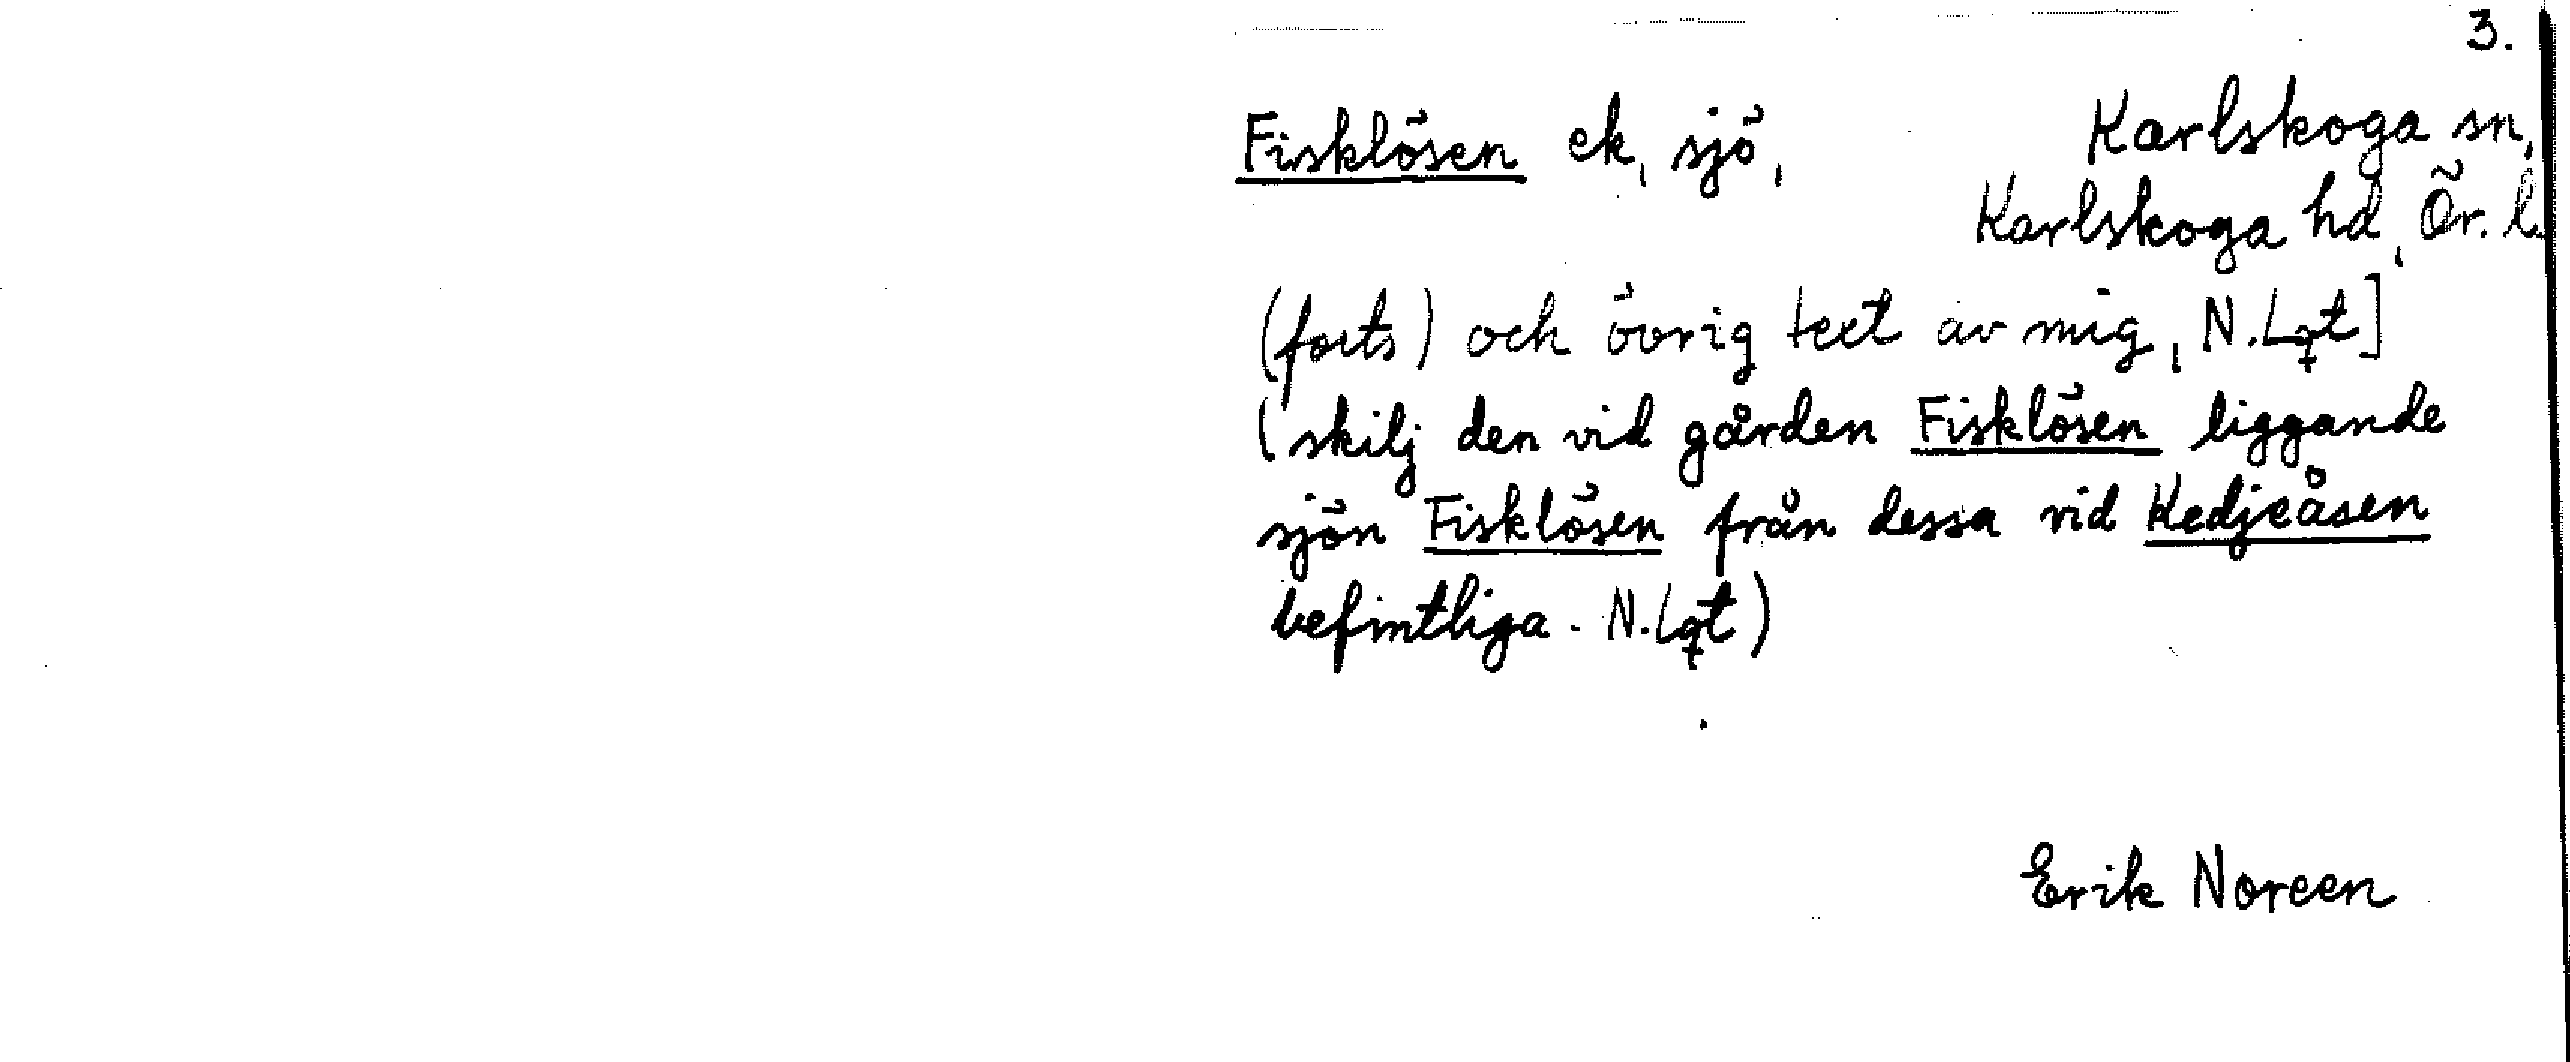 3.
Fisklösen ek, sjö, Karlskoga sn,
Karlskoga hd, Ör. l.
(forts) och övrig text av mig, N. Lqt]
(skilj den vid gården Fisklösen liggande
sjön Fisklösen från dessa vid Kedjeåsen
befintliga. N. Lqt)
Erik Noreen